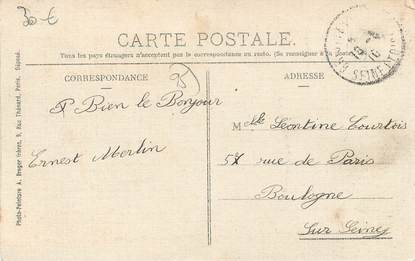 30 €
CARTE POSTALE.
Tous les pays étrangers n'acceptent pas la correspondance au recto. (Se renseigner à la Poste)
CORRESPONDANCE
ADRESSE
Bien le Bonjour
Ernest Merlin
Mlle Léontine Courtois
57 rue de Paris
Boulogne
Sur Seine
Photo-Peinture A. Breger frères, 9, Rue Thénard, Paris. Déposé.